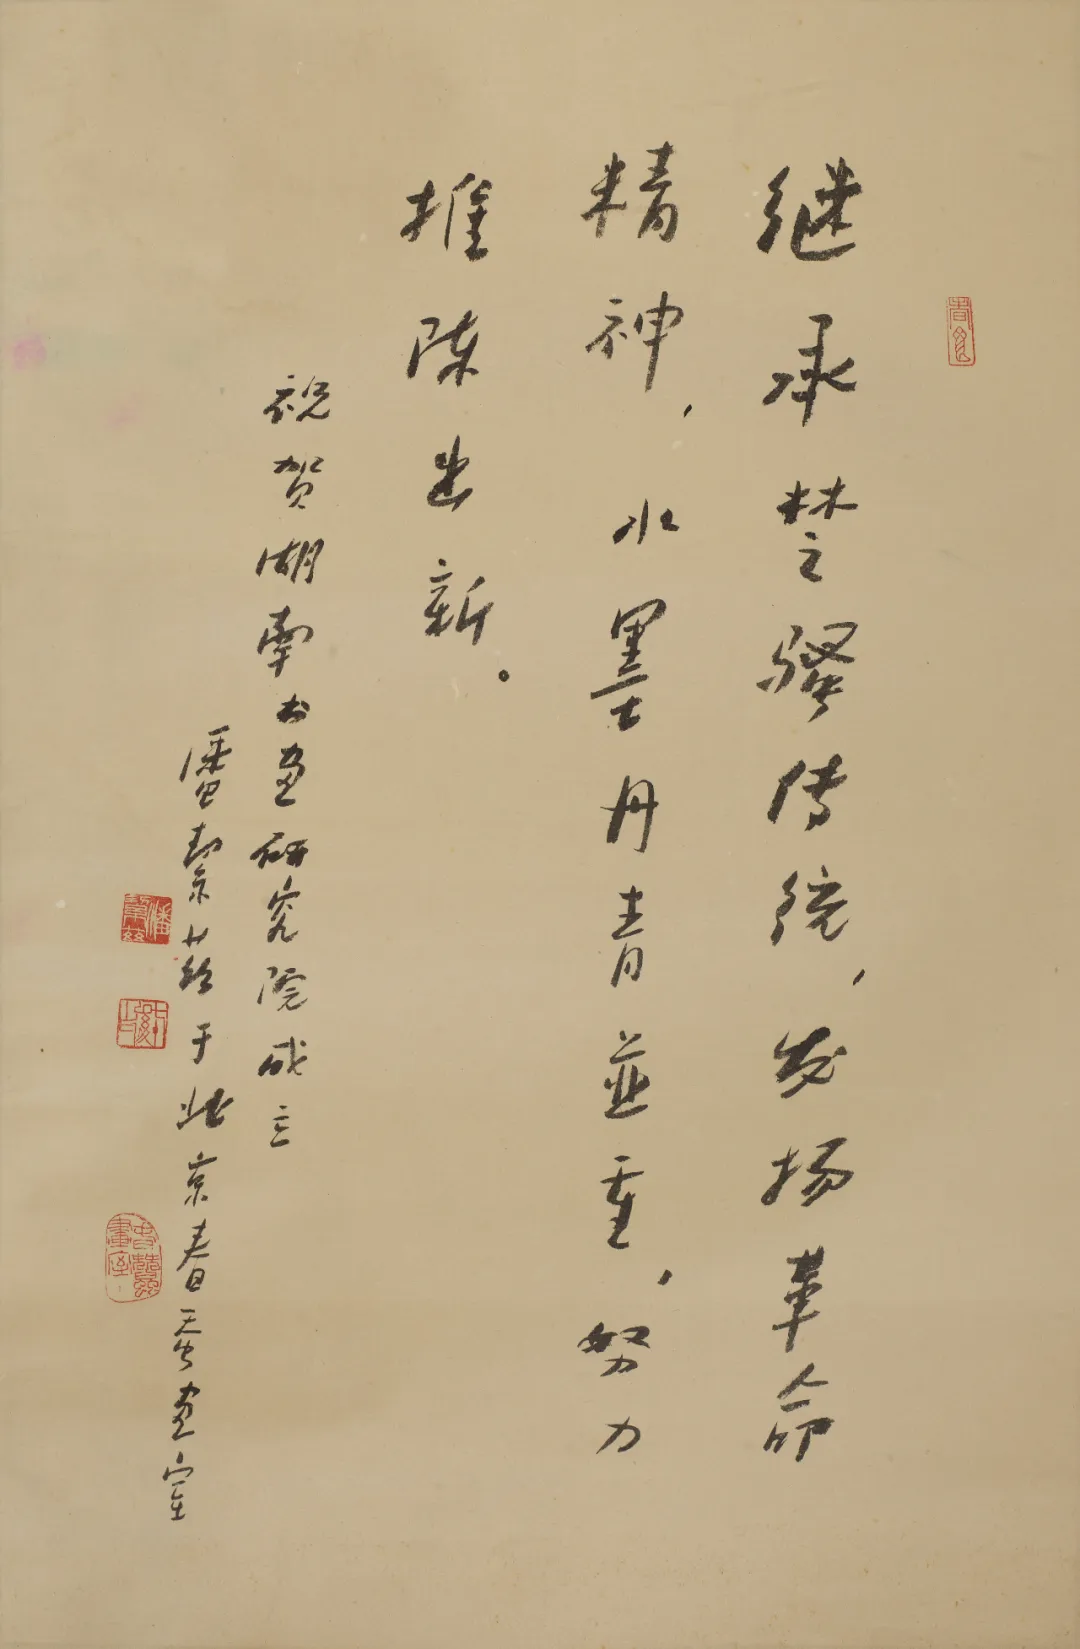 继承楚骚传统，发扬革命
精神，水墨丹青並重，努力
推陈出新。
祝贺湖南书画研究院成立
潘絜兹于北京春蚕画室
潘絜兹
春蠶畫室